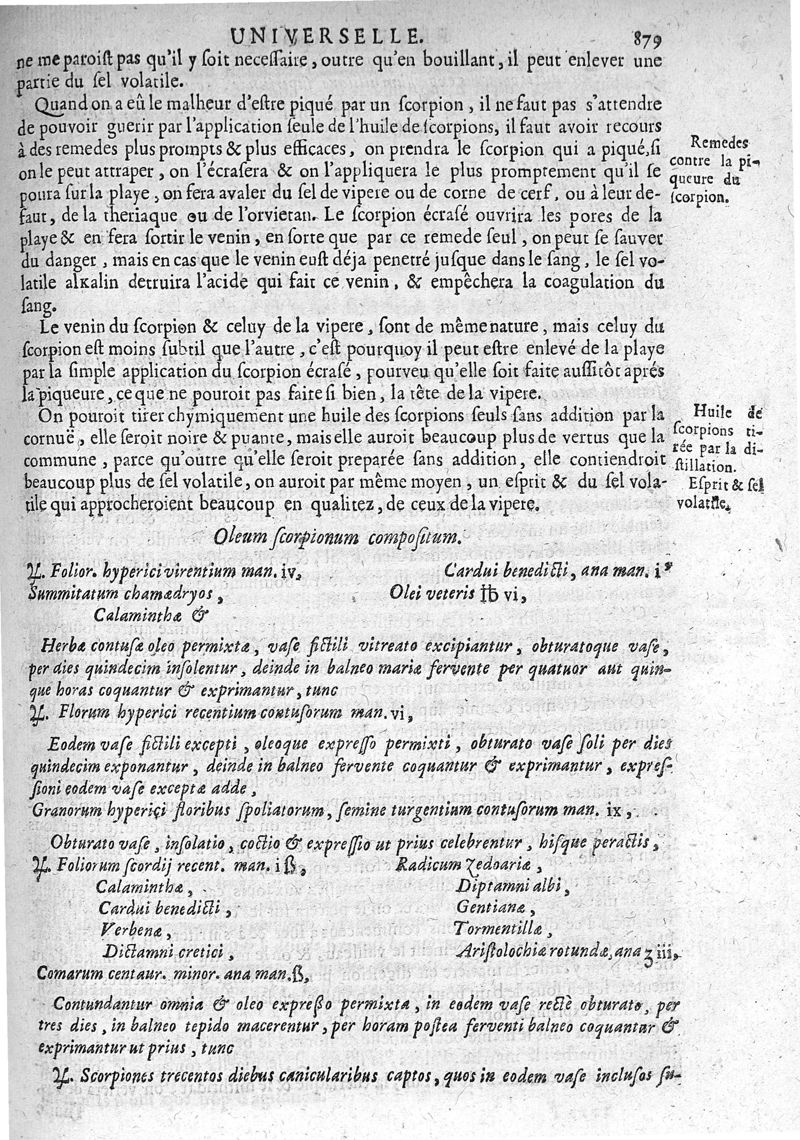 UNIVERSELLE. 879
ne me paroist pas qu'il y soit necessaire, outre qu'en bouillant, il peut enlever une
partie du sel volatile.
Quand on a eû le malheur d'estre piqué par un scorpion, il ne faut pas s'attendre
de pouvoir guerir par l'application seule de l'huile de scorpions, il faut avoir recours
à des remedes plus prompts & plus efficaces, on prendra le scorpion qui a piqué, si
on le peut attraper, on l'écrasera & on l'appliquera le plus promptement qu'il se
poura sur la playe, on fera avaler du sel de vipere ou de corne de cerf, ou à leur de-
faut, de la theriaque ou de l'orvietan. Le scorpion écrasé ouvrira les pores de la
playe & en fera sortir le venin, en sorte que par ce remede seul, on peut se sauver
du danger, mais en cas que le venin eust déja penetré jusque dans le sang, le sel vo-
latile alkalin detruira l'acide qui fait ce venin, & empêchera la coagulation du
sang.
Remedes
contre la pi-
queure du
scorpion.
Le venin du scorpion & celuy de la vipere, sont de même nature, mais celuy du
scorpion est moins subtil que l'autre, c'est pourquoy il peut estre enlevé de la playe
par la simple application du scorpion écrasé, pourveu qu'elle soit faite aussitôt aprés
la piqueure, ce que ne pouroit pas faire si bien, la tête de la vipere.
On pouroit tirer chymiquement une huile des scorpions seuls sans addition par la
cornuë, elle seroit noire & puante, mais elle auroit beaucoup plus de vertus que la
commune, parce qu'outre qu'elle seroit preparée sans addition, elle contiendroit
beaucoup plus de sel volatile, on auroit par même moyen, un esprit & du sel vola-
tile qui approcheroient beaucoup en qualitez, de ceux de la vipere.
Huile de
scorpions ti-
rée par la di-
stillation.
Esprit & sel
volatile.
Oleum scorpionum compositum.
℞. Folior. hyperici virentium man. iv,
Summitatum chamædryos,
Calaminthæ &
Cardui benedicti, ana man. i
Olei veteris ℔ vi,
Herbæ contusæ oleo permixtæ, vase fictili vitreato excipiantur, obturatoque vase,
per dies quindecim insolentur, deinde in balneo mariæ fervente per quatuor aut quin-
que horas coquantur & exprimantur, tunc
℞. Florum hyperici recentium contusorum man. vi,
Eodem vase fictili excepti, oleoque expresso permixti, obturato vase soli per dies
quindecim exponantur, deinde in balneo fervente coquantur & exprimantur, expres-
sioni eodem vase exceptæ adde,
Granorum hyperici floribus spoliatorum, semine turgentium contusorum man. ix,
Obturato vase, insolatio, coctio & expressio ut prius celebrentur, hisque peractis,
℞. Foliorum scordij recent. man. i ß,
Calaminthæ,
Cardui benedicti,
Verbenæ,
Dictamni cretici,
Comarum centaur. minor. ana man. ß,
Radicum Zedoariæ,
Diptamni albi,
Gentianæ,
Tormentillæ,
Aristolochiæ rotundæ, ana ʒ iii,
Contundantur omnia & oleo expreßo permixta, in eodem vase rectè obturato, per
tres dies, in balneo tepido macerentur, per horam postea ferventi balneo coquantur &
exprimantur ut prius, tunc
℞. Scorpiones trecentos diebus canicularibus captos, quos in eodem vase inclusos su-